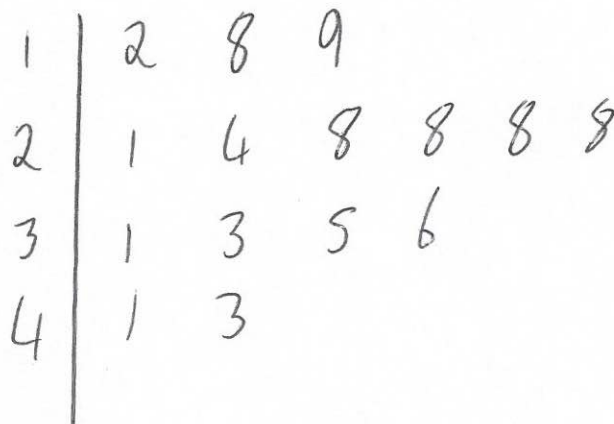 1 | 2 8 9
2 | 1 4 8 8 8 8
3 | 1 3 5 6
4 | 1 3